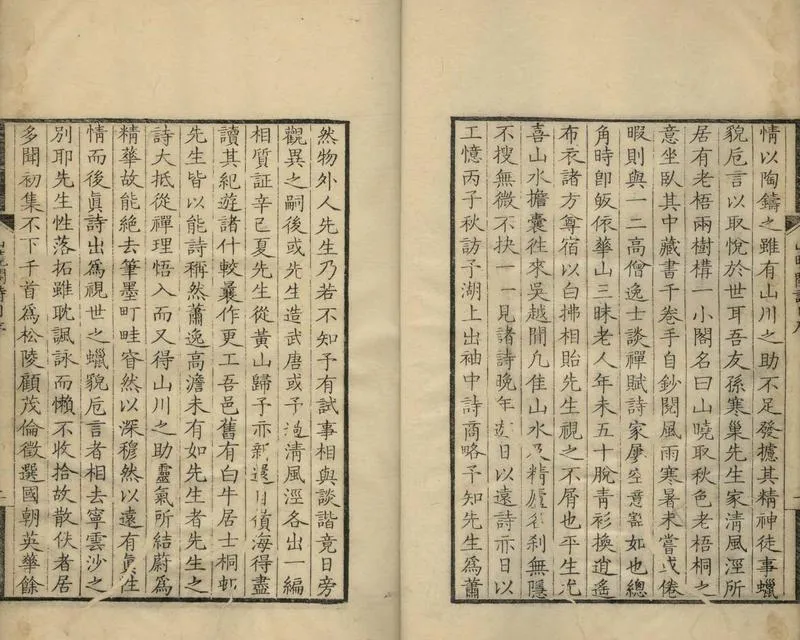 情以陶鑄之雖有山川之助不足發攄其精神徒事蠟
貌卮言以取悅於世耳吾友孫寒巢先生家清風涇所
居有老梧兩樹構一小閣名曰山曉取秋色老梧桐之
意坐臥其中藏書千卷手自鈔閱風雨寒暑未嘗或倦
暇則與一二高僧逸士談禪賦詩家屢空意豁如也總
角時卽皈依華山三昧老人年未五十脫青衫換逍遙
布衣諸方尊宿以白拂相貽先生視之不屑也平生
喜山水擔囊往來吳越間凡佳山水及精廬 利無隱
不搜無微不抉一一見諸詩晚年 日以遠詩亦日以
工憶丙子秋訪予湖上出袖中詩商略予知先生爲蕭
然物外人先生乃若不知予有試事相與談諧竟日旁
觀異之嗣後或先生造武唐或予過清風涇各出一編
相質証辛巳夏先生從黃山歸予亦新 自 海得盡
讀其紀遊諸什較曩作更工吾邑舊有白牛居士桐
先生皆以能詩稱然蕭逸高澹未有如先生者先生之
詩大抵從禪理悟入而又得山川之助靈氣所結蔚爲
精華故能絶去筆墨町畦窅然以深穆然以遠有眞性
情而後眞詩出爲視世之蠟貌卮言者相去寧雲沙之
別耶先生性落拓雖耽諷詠而懶不收拾故散佚者居
多閒初集不下千首爲松陵顧茂倫徵選國朝英華餘